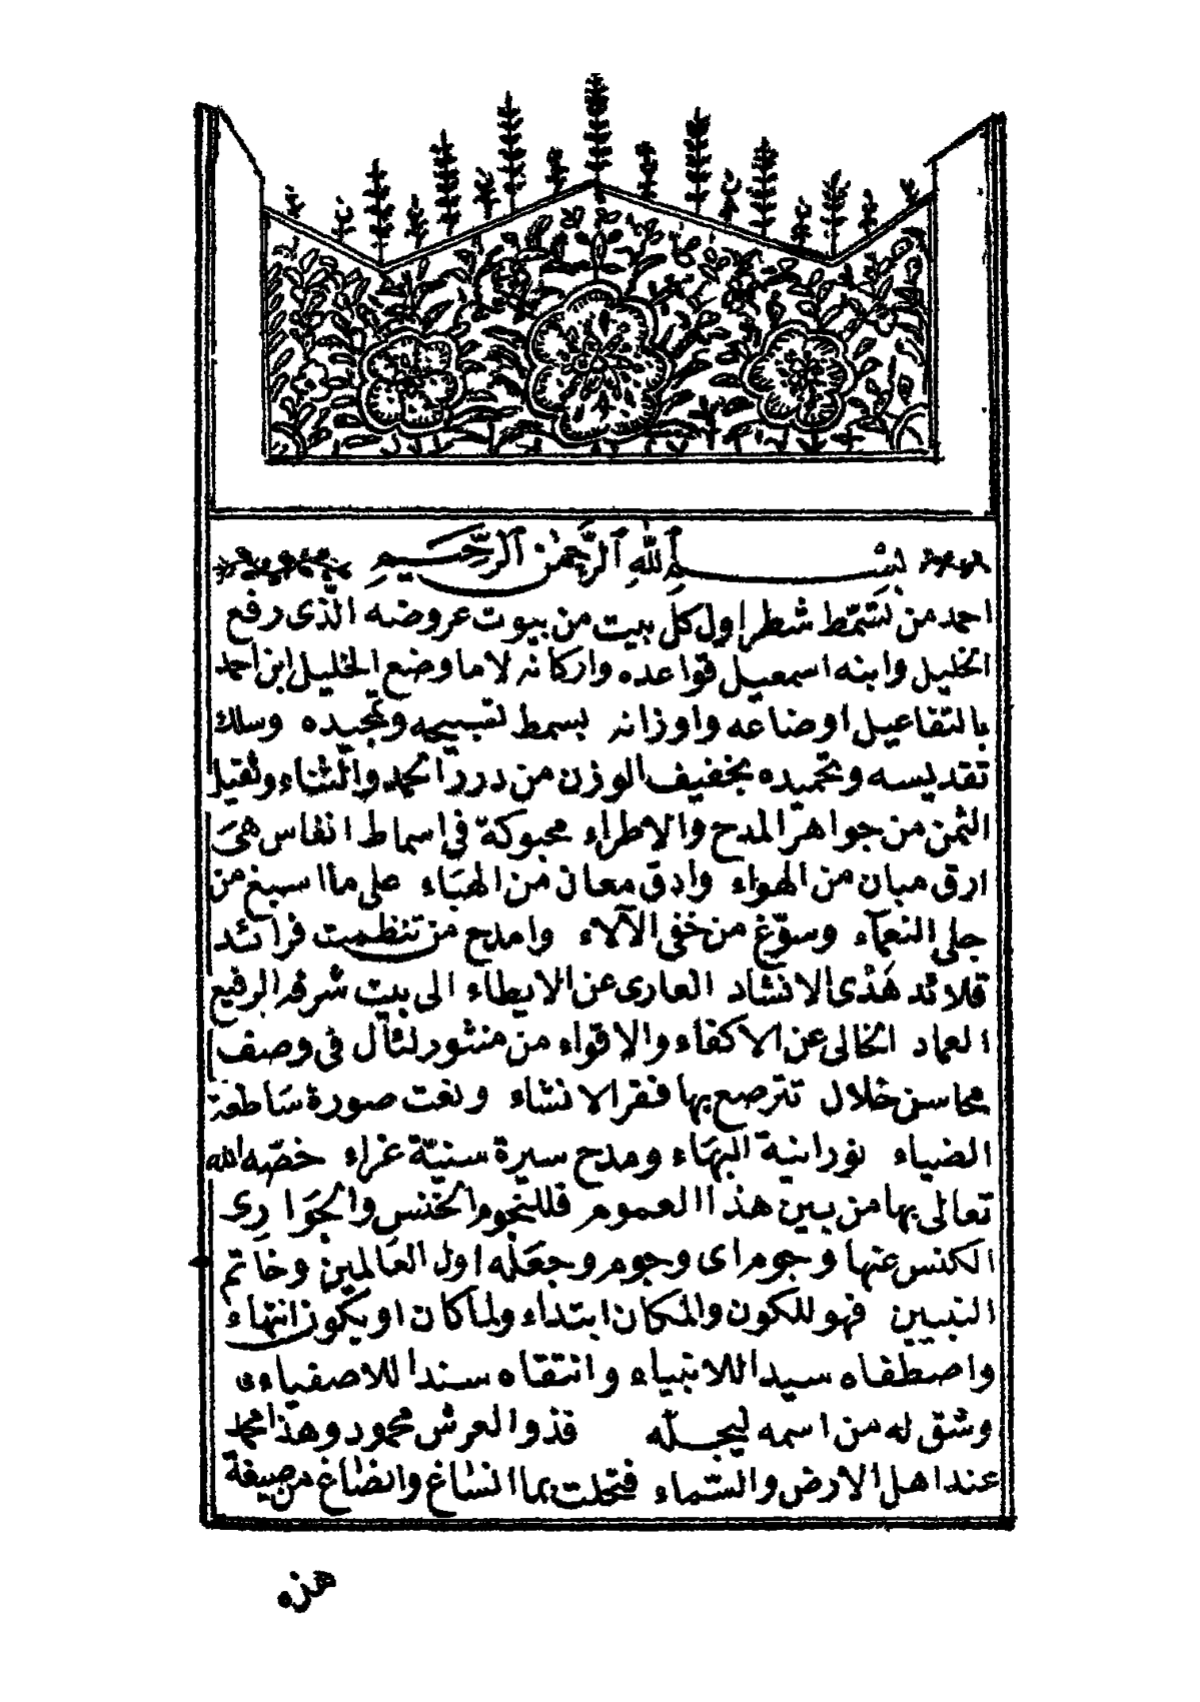 بسم الله الرحمن الرحيم
احمد من نشمّط شطر اول كل بيت من بيوت عروضه الذى رفع
الخليل وابنه اسمعيل قواعده واركانه لا ما وضع الخليل ابن احمد
بالتفاعيل اوضاعه واوزانه بسمط تسبيحه وتمجيده وسلك
تقديسه وتحميده بخفيف الوزن من درر الحمد والثناء وثقيل
الثمن من جواهر المدح والاطراء محبوكة فى اسماط انفاس هى
ارق مبان من الهواء وادق معان من الهباء على ما اسبغ من
جلى النعمآء وسوّغ من خفى الآلاء وامدح من تنظمت فرائد
قلائد هذى الانشاد العارى عن الايطاء الى بيت شرفه الرفيع
العماد الخالى عن الاكفاء والاقواء من منثور لئال فى وصف
محاسن خلال تترصع بها فقر الانشاء ونعت صورة ساطعة
الضياء نورانية البهاء ومدح سيرة سنيّة غراء خصّه الله
تعالى بها من بين هذا العموم فللنجوم الخنس والجوارى
الكنس عنها وجوم اى وجوم وجعله اول العالمين وخاتم
النبيين فهو للكون والمكان ابتداء ولما كان او يكون انتهاء
واصطفاه سيدا للانبياء وانتقاه سندا للاصفياء
وشق له من اسمه ليجلّه فذو العرش محمود وهذا محمد
عند اهل الارض والسّماء فتحلت بما انساغ وانصاغ من صيغة
هذه